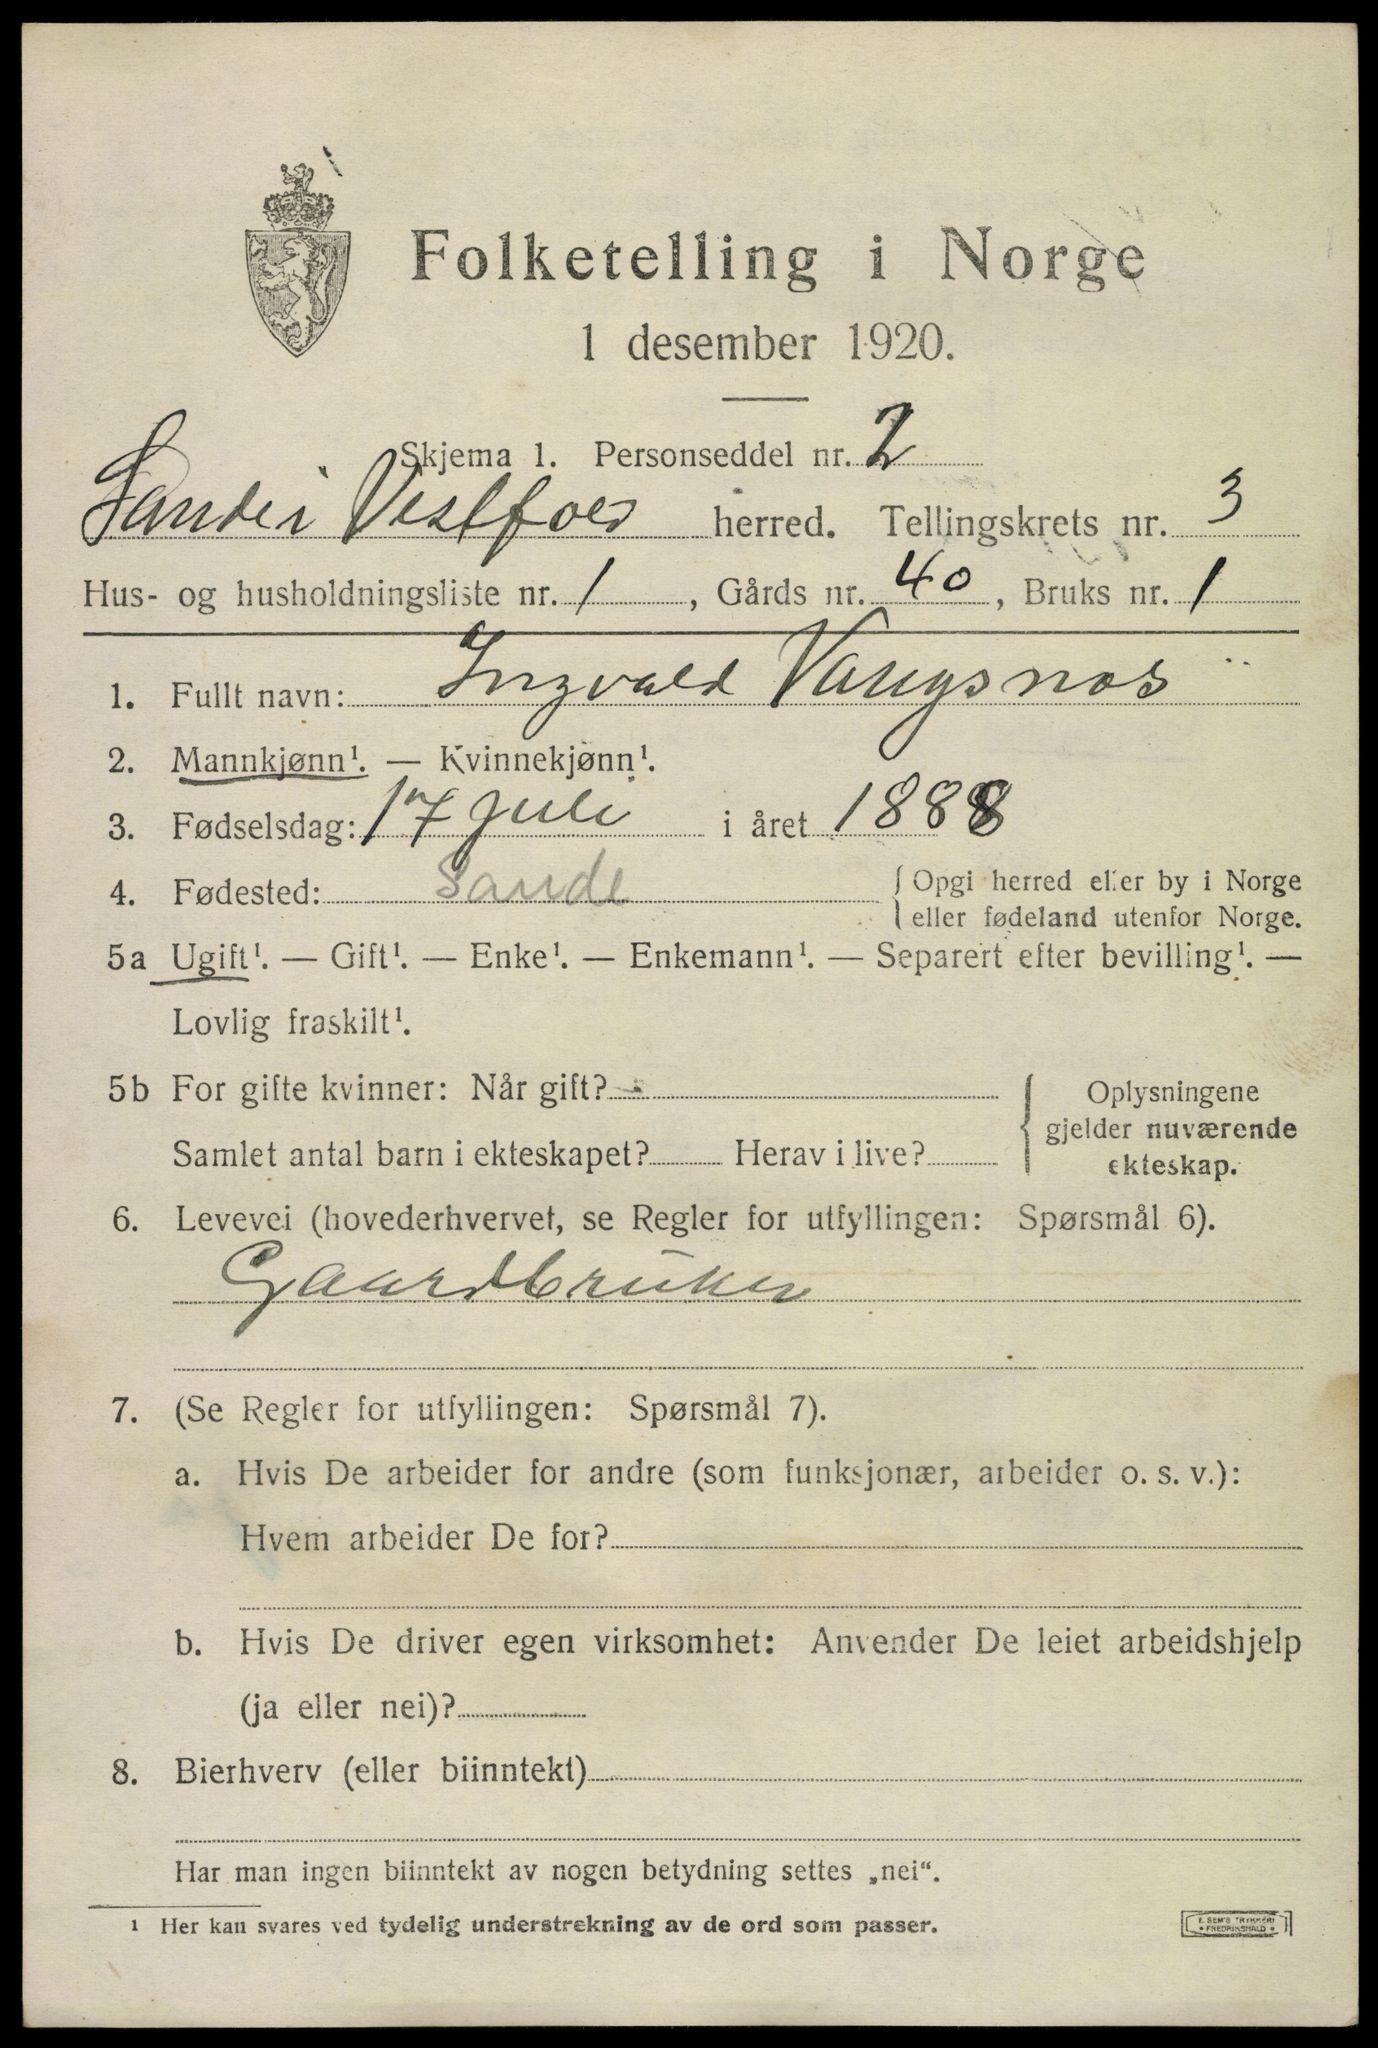 Folketelling i Norge
1 desember 1920.
Skjema 1. Personseddel nr. 2
Sande i Vestfold herred. Tellingskrets nr. 3
Hus- og husholdningsliste nr. 1, Gårds nr. 40, Bruks nr. 1
1. Fullt navn: Ingvald Vangsnos
2. Mannkjønn¹. — Kvinnekjønn¹.
3. Fødselsdag: 17 juli i året 1888
4. Fødested: Sande {Opgi herred eller by i Norge
eller fødeland utenfor Norge.
5a Ugift¹. — Gift¹. — Enke¹. — Enkemann¹. — Separert efter bevilling¹. —
Lovlig fraskilt¹.
5b For gifte kvinner: Når gift?
Samlet antal barn i ekteskapet? Herav i live?
{Oplysningene
gjelder nuværende
ekteskap.
6. Levevei (hovederhvervet, se Regler for utfyllingen: Spørsmål 6).
Gaardbruker
7. (Se Regler for utfyllingen: Spørsmål 7).
a. Hvis De arbeider for andre (som funksjonær, arbeider o. s. v.):
Hvem arbeider De for?
b. Hvis De driver egen virksomhet: Anvender De leiet arbeidshjelp
(ja eller nei)?
8. Bierhverv (eller biinntekt)
Har man ingen biinntekt av nogen betydning settes „nei“.
¹ Her kan svares ved tydelig understrekning av de ord som passer.
E. SEM'S TRYKKERI
• FREDRIKSHALD •